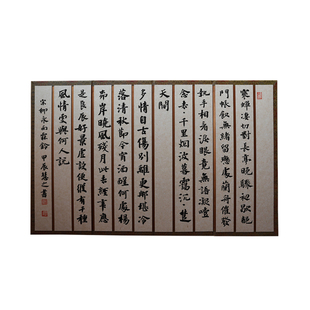 寒蟬淒切對長亭晚驟雨初歇都
門帳飲無緒留戀處蘭舟催發
執手相看淚眼竟無語凝噎
念去々千里煙波暮靄沉々楚
天闊
多情自古傷別離更那堪冷
落清秋節今宵酒醒何處楊
柳岸曉風殘月此去經年應
是良辰好景虛設便縱有千種
風情更與何人說
宋柳永雨霖鈴 甲辰慧之書